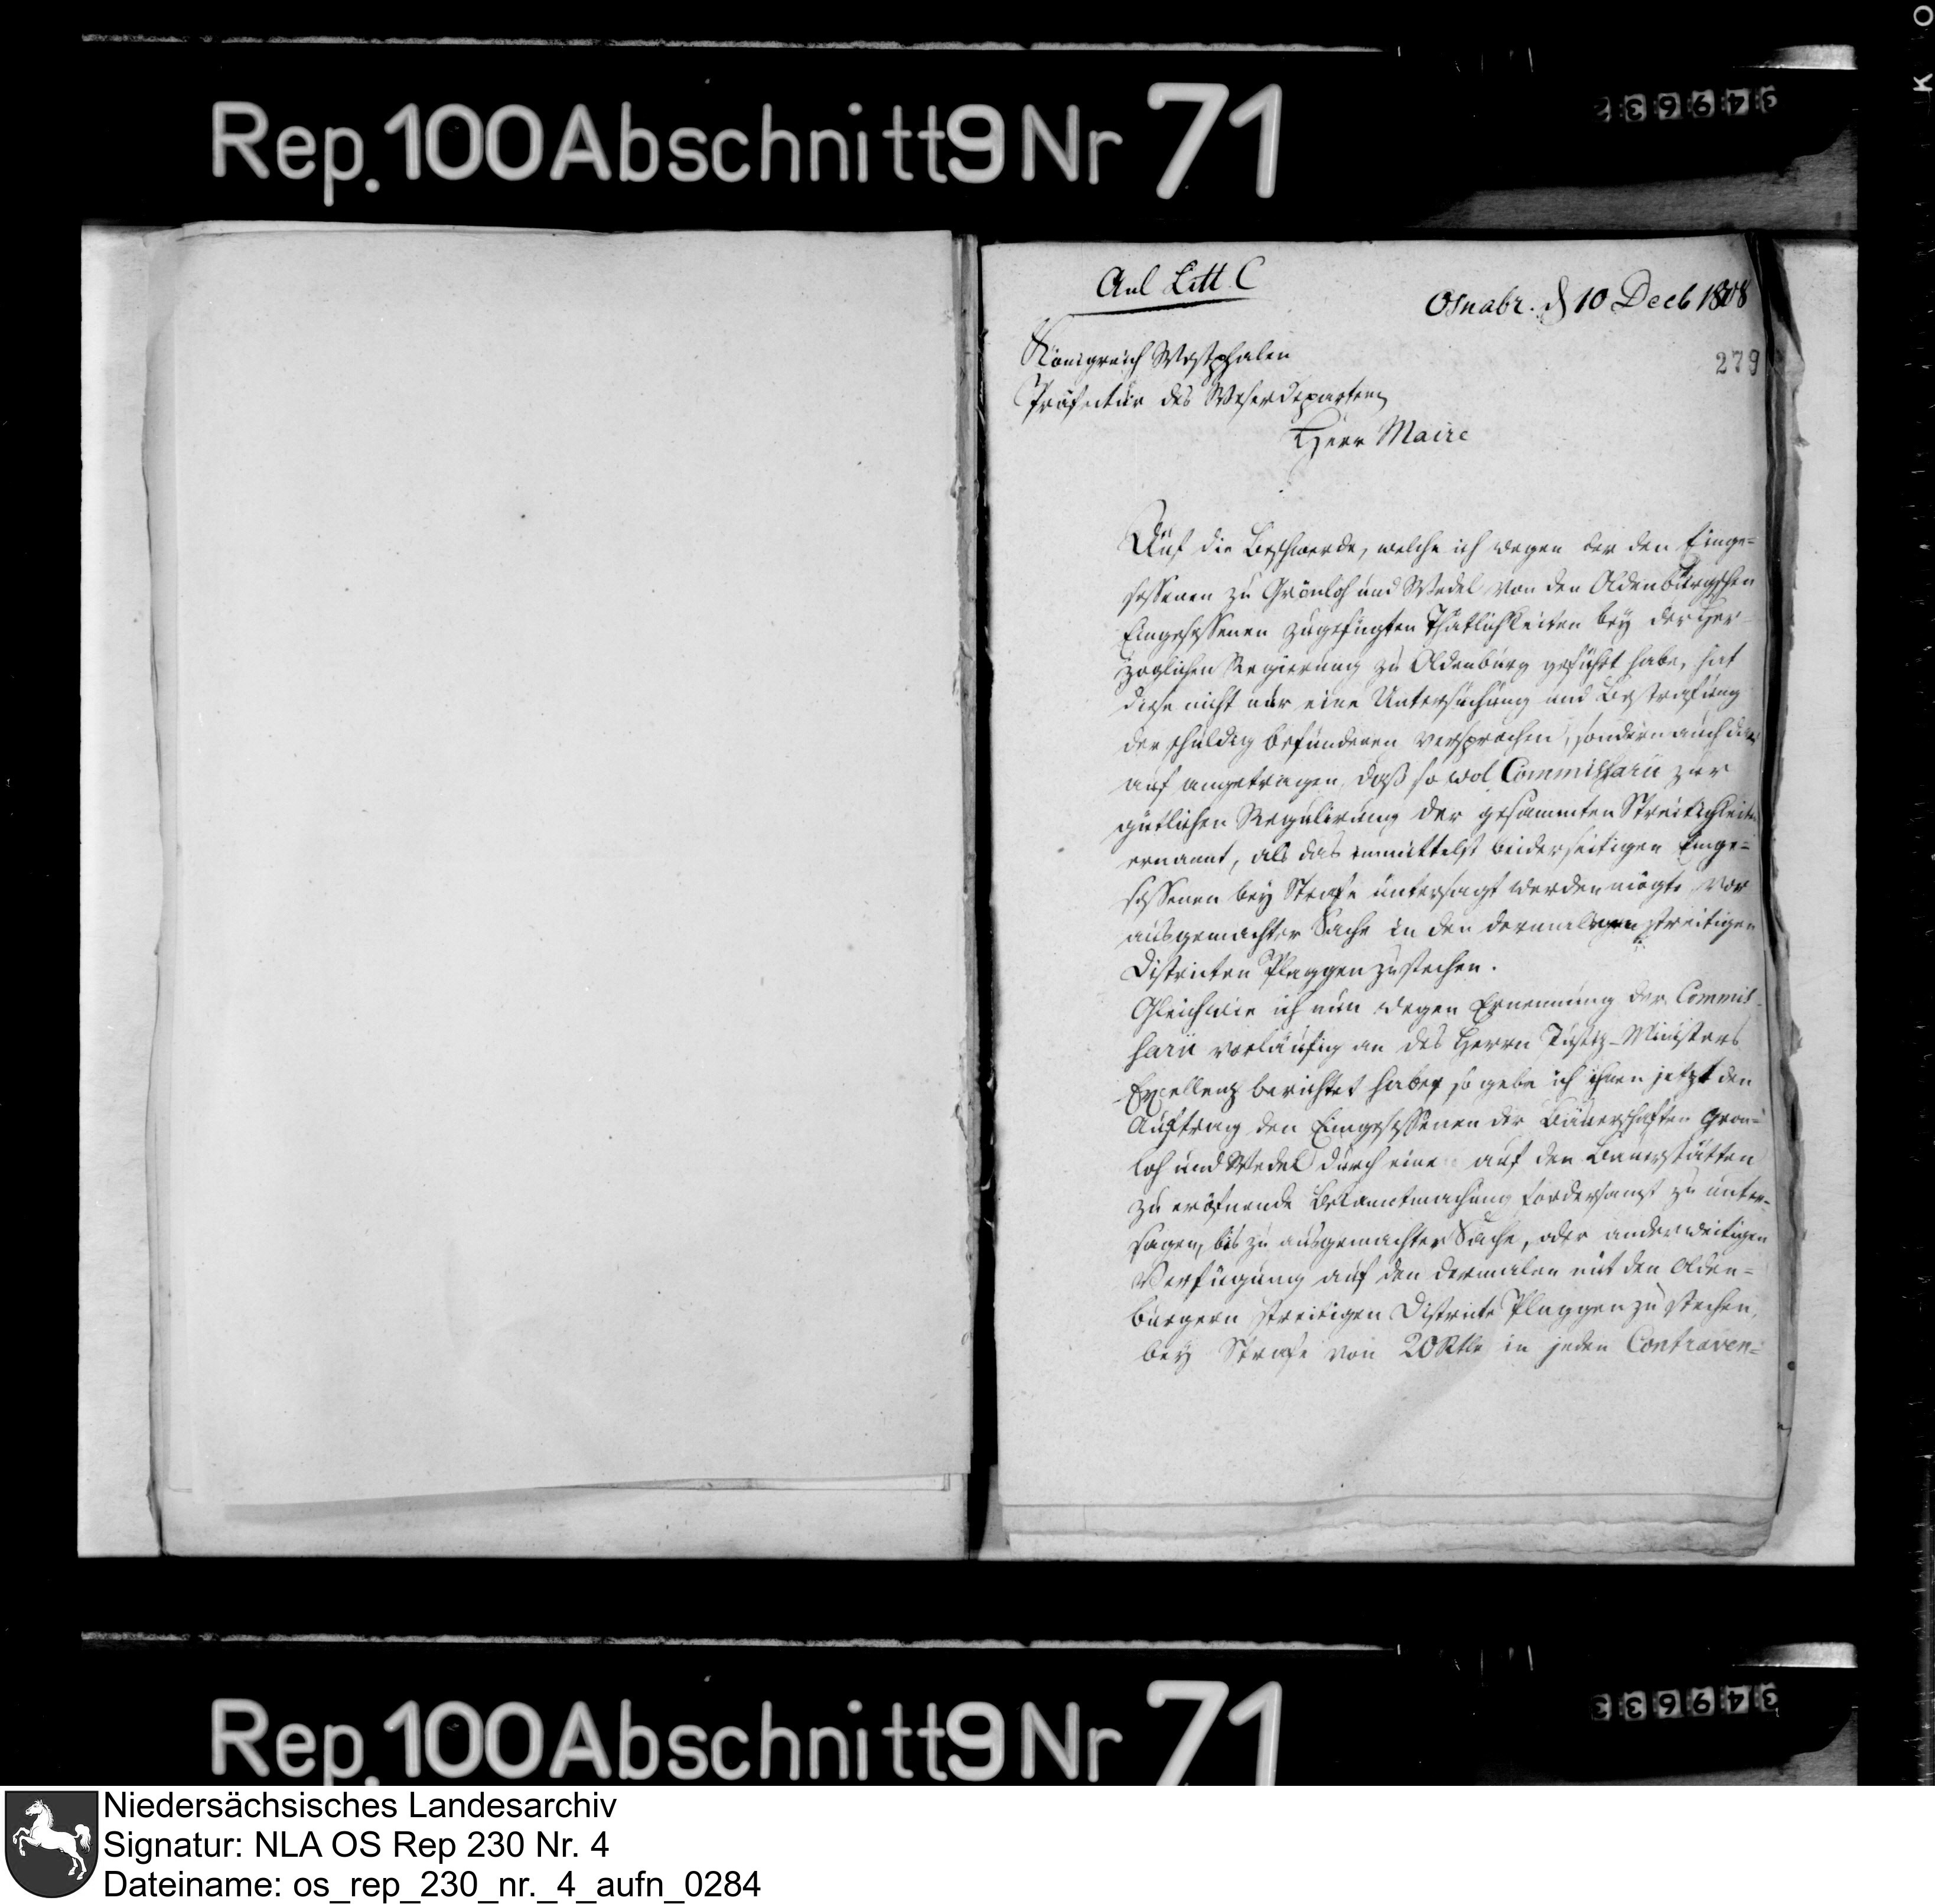 Rep.100Abschnitt9Nr 71
349632
Anl Litt. C
Osnabr. d 10 Decb 1808
279
Königreich Westphalen
Präfectur des Weserdepartem
Herr Maire
Auf die Beschwerde, welche ich wegen der den Einge=
sessenen zu Grönloh und Wedel von den Oldenburgschen
Eingesessenen zugefügten Thätlichkeiten bey der Her
zoglichen Regierung zu Oldenburg geführt habe, hat
diese nicht nur eine Untersuchung und Bestrafung
der schuldig befundenen versprochen, sondern auch dar
auf angetragen, daß so wol Commissarii zur
gütlichen Regulirung der gesammten Streitigkeiten
ernannt, als das immittelst beiderseitigen Einge=
sessenen bey Strafe untersagt werden mögte vor
ausgemachter Sache in den dermaligen streitigen
Districten Plaggen zu stechen.
Gleichwie ich nun wegen Ernennung der Commis-
sarii vorläufig an des Herrn Justitz-Ministers
Excellenz berichtet habe, so gebe ich ihnen jetzt den
Auftrag den Eingesessenen der Bauerschaften Grön=
loh und Wedel durch eine auf den Bauerstätten
zu eröfnende Bekanntmachung fordersamst zu unter-
sagen, bis zu ausgemachter Sache, oder anderweitigen
Verfügung auf den dermalen mit den Olden=
burgern streitigen Districte Plaggen zu stechen,
bey Strafe von 20 Rtlr in jeden Contraven=
Rep.100Abschnitt9Nr 71
349633
Niedersächsisches Landesarchiv
Signatur: NLA OS Rep 230 Nr. 4
Dateiname: os_rep_230_nr._4_aufn_0284